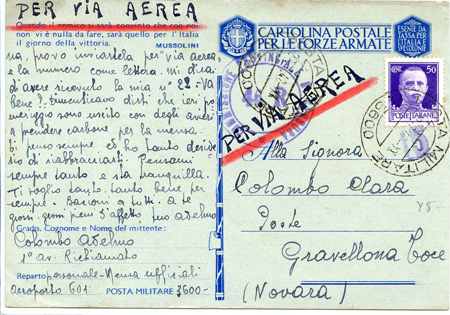 PER VIA AEREA
Quando il nemico si sarà convinto che con noi
non vi è nulla da fare, sarà quello per l'Italia
il giorno della vittoria.
MUSSOLINI
na, provo inviartela per via aerea
e la numero come lettera. Mi dirai
d'avere ricevuto la mia n° 22 - Va
bene?
dirti che ieri po
meriggio sono uscito con degli avieri
a prendere carbone per la mensa.
Ti penso sempre ed ho tanto deside
rio di riabbracciarti. Pensami
sempre tanto e sta tranquilla.
Ti voglio tanto tanto bene, per
sempre. Bacioni a tutti. A te
Grado, Cognome e Nome del mittente:
Colombo Adelmo
1° av. Richiamato
Reparto
Mensa ufficiali
Aeroporto 601
POSTA MILITARE 3600
CARTOLINA POSTALE
PER LE FORZE ARMATE
ESENTE DA
TASSA PER
L'ITALIA E
SVE COLONIE
50
POSTE ITALIANE
POSTA MILITARE
PER VIA AEREA
Alla Signora
Colombo Clara
Poste
Gravellona Toce
(Novara)